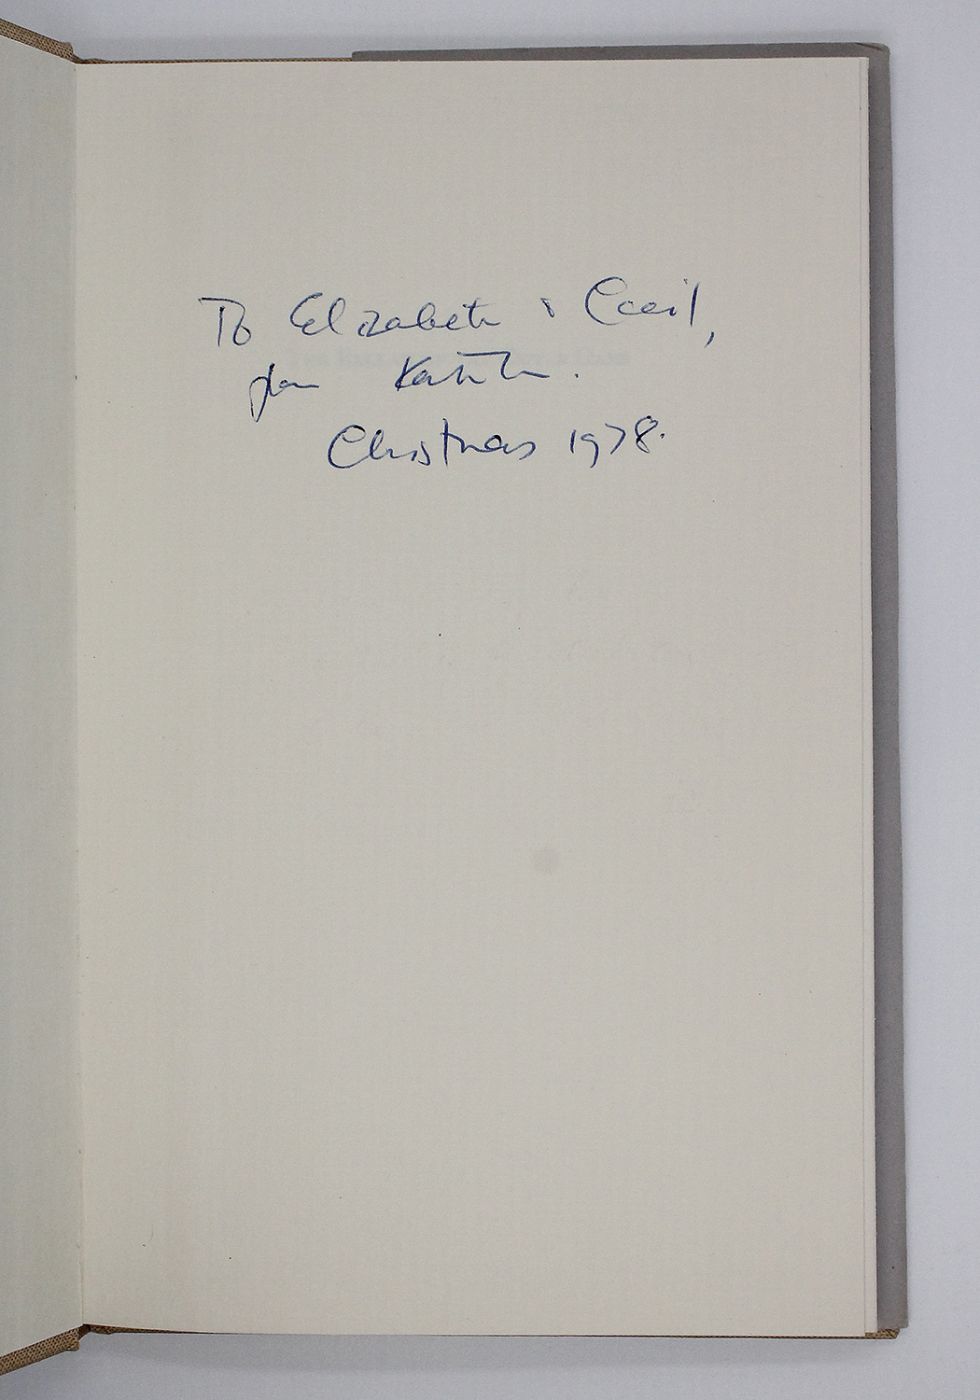 To Elizabeth & Cecil,
from Kathleen.
Christmas 1978.